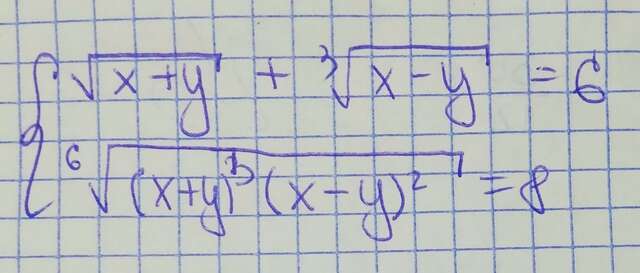 √(x+y) + ∛(x-y) = 6
⁶√((x+y)³(x-y)²) = 8